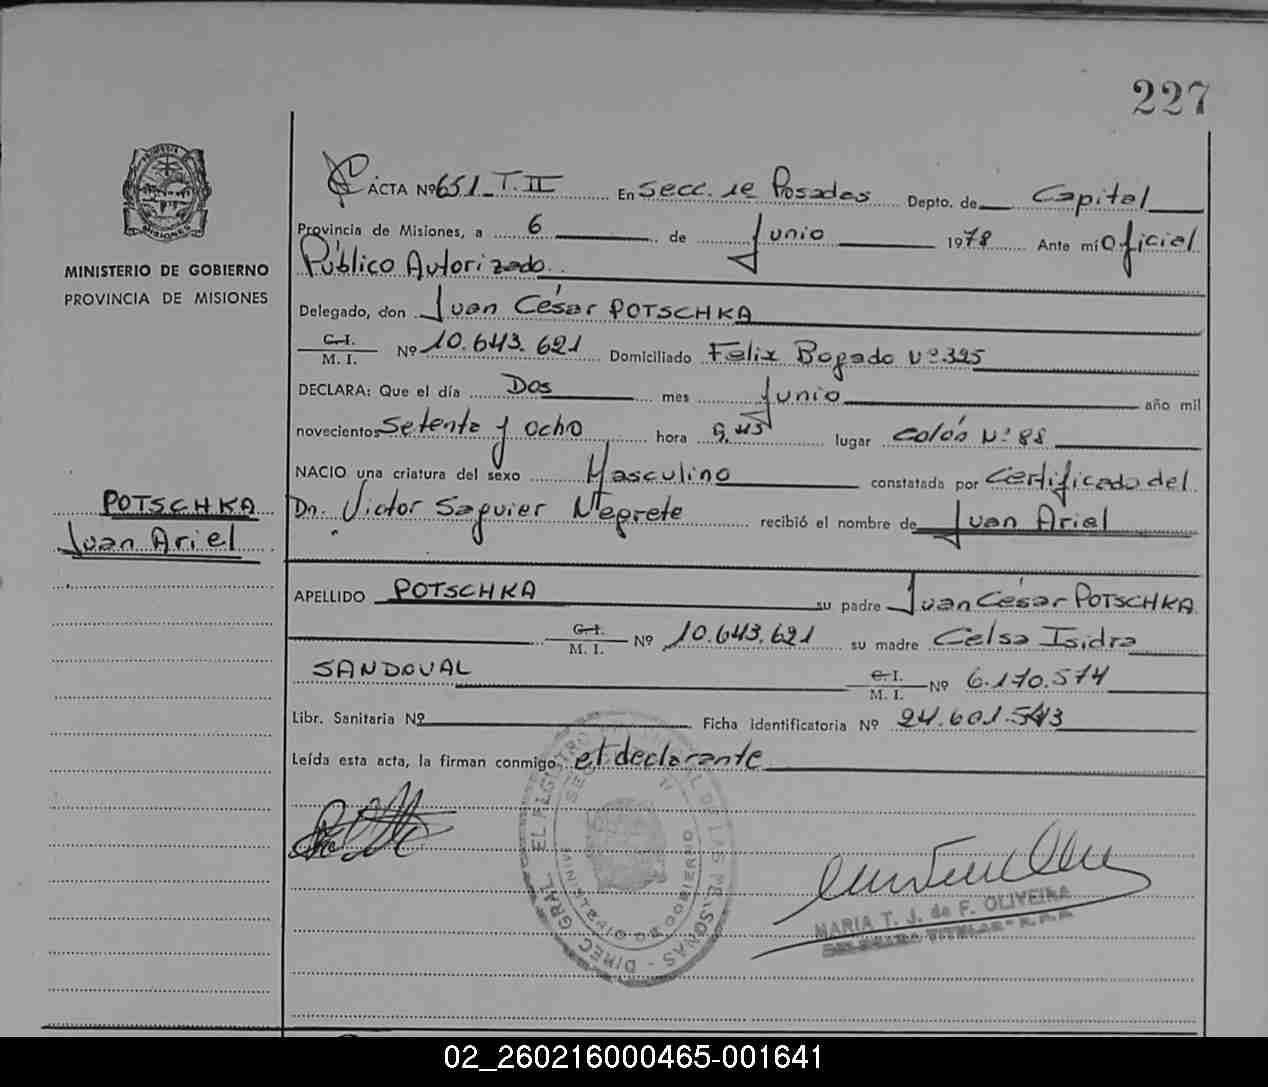 227
ACTA Nº 651_T.II En Secc. 1e Posadas Depto. de Capital
Provincia de Misiones, a 6 de Junio 1978 Ante mí Oficial
Público Autorizado
Delegado, don Juan César POTSCHKA
MINISTERIO DE GOBIERNO
PROVINCIA DE MISIONES
C. I.
M. I. Nº 10.643.621 Domiciliado Felix Bogado Nº 325
DECLARA: Que el día Dos mes Junio año mil
novecientos Setenta y Ocho hora 9,45 lugar Colón Nº 88
NACIO una criatura del sexo Masculino constatada por Certificado del
Dn. Victor Saguier Negrete recibió el nombre de Juan Ariel
POTSCHKA
Juan Ariel
APELLIDO POTSCHKA su padre Juan César POTSCHKA
C. I.
M. I. Nº 10.643.621 su madre Celsa Isidra
SANDOVAL C. I.
M. I. Nº 6.170.574
Libr. Sanitaria Nº Ficha identificatoria Nº 24.601.543
Leída esta acta, la firman conmigo, el declarante
MARIA T. J. de F. OLIVEIRA
MISIONES
02_260216000465-001641